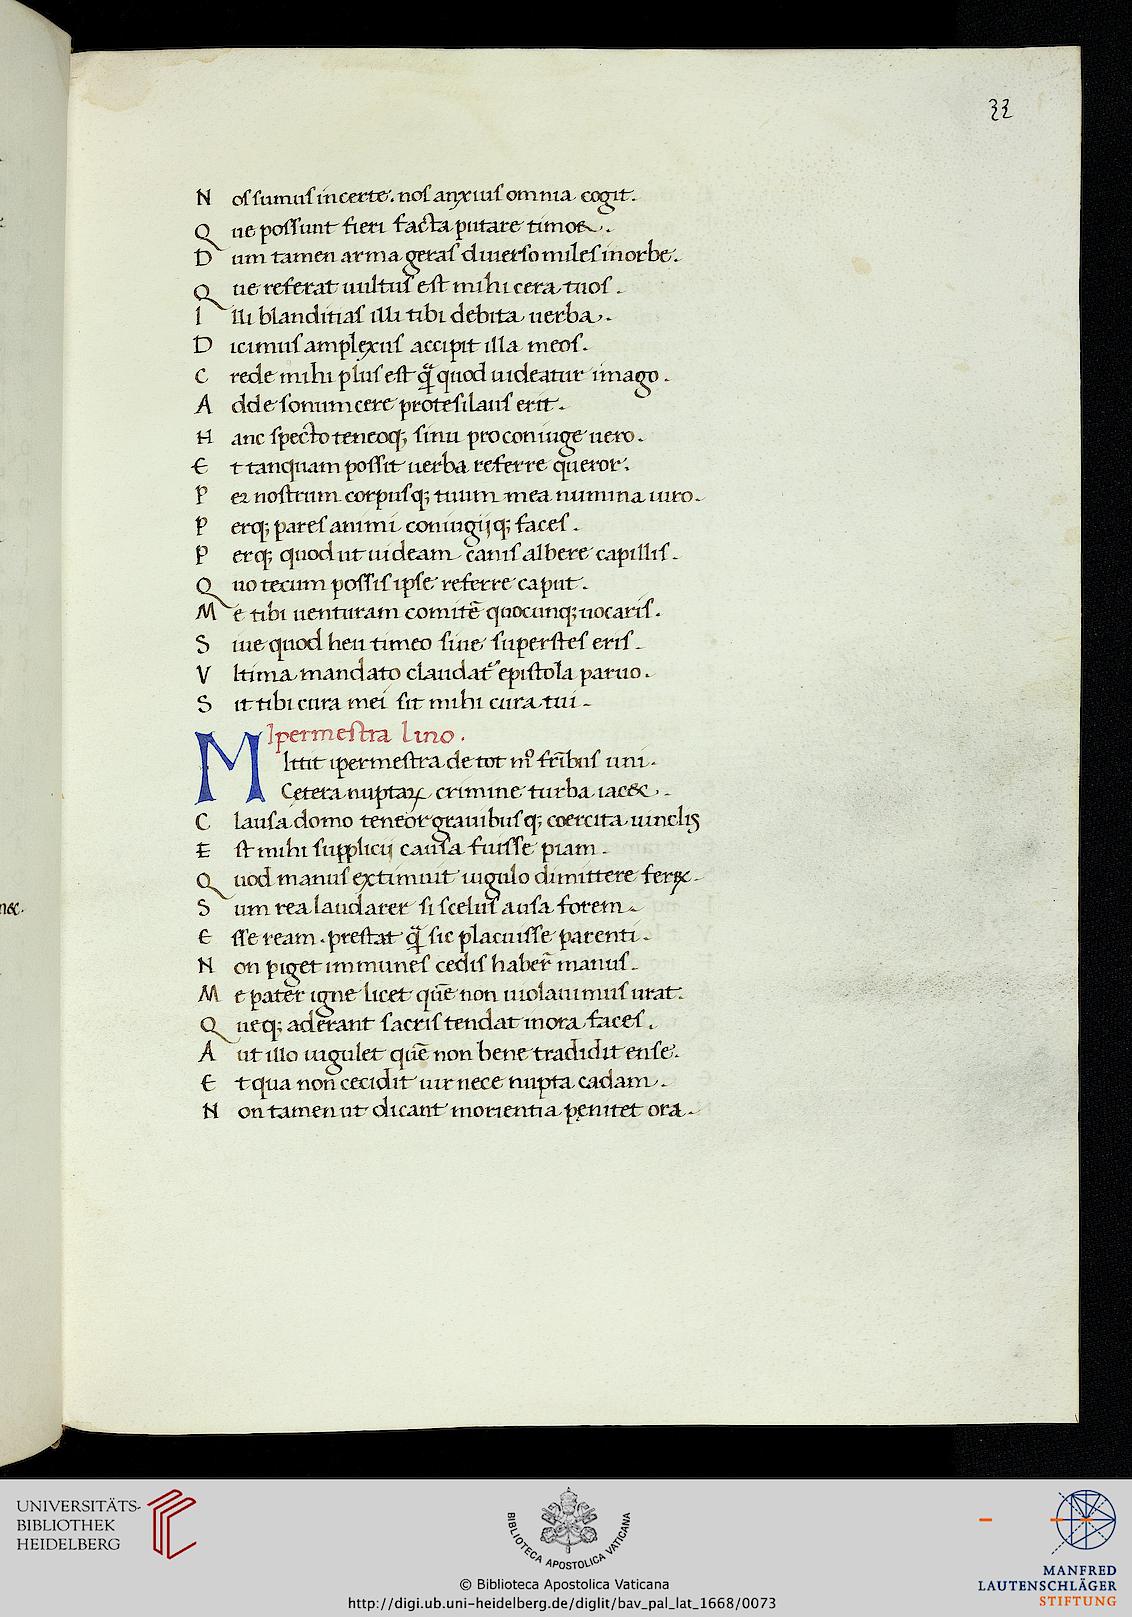 33
N os sumus incerte. nos anxius omnia cogit.
Q ue possunt fieri facta putare timor.
D um tamen arma geras diuerso miles in orbe.
Q ue referat uultus est mihi cera tuos.
I lli blanditias illi tibi debita uerba.
D icimus amplexus accipit illa meos.
C rede mihi plus est q̃ quod uideatur imago.
A dde sonum cere protesilaus erit.
H anc specto teneoq; sinu pro coniuge uero.
E t tanquam possit uerba referre queror.
P er nostrum corpusq; tuum mea numina uiro.
P erq; pares animi coniugijq; faces.
P erq; quod ut uideam canis albere capillis.
Q uo tecum possis ipse referre caput.
M e tibi uenturam comitē quocunq; uocaris.
S iue quod heu timeo siue superstes eris.
V ltima mandato claudat᷑ epistola paruo.
S it tibi cura mei sit mihi cura tui.
Ipermestra lino.
M Ittit ipermestra de tot m̊ fr̄ibus uni.
Cętera nuptaꝝ crimine turba iacet.
C lausa domo teneor grauibusq; coercita uinclis
E st mihi supplicij causa fuisse piam.
Q uod manus extimuit iugulo dimittere ferrum.
S um rea laudarer si scelus ausa forem.
E sse ream. prestat q̃ sic placuisse parenti.
N on piget immunes cedis haber̄ manus.
M e pater igne licet quē non uiolauimus urat.
Q ueq; aderant sacris tendat in ora faces.
A ut illo iugulet quē non bene tradidit ense.
E t qua non cecidit uir nece nupta cadam.
N on tamen ut dicant morientia pęnitet ora.
nec.
UNIVERSITÄTS-
BIBLIOTHEK
HEIDELBERG
BIBLIOTECA APOSTOLICA VATICANA
MANFRED
LAUTENSCHLÄGER
STIFTUNG
© Biblioteca Apostolica Vaticana
http://digi.ub.uni-heidelberg.de/diglit/bav_pal_lat_1668/0073